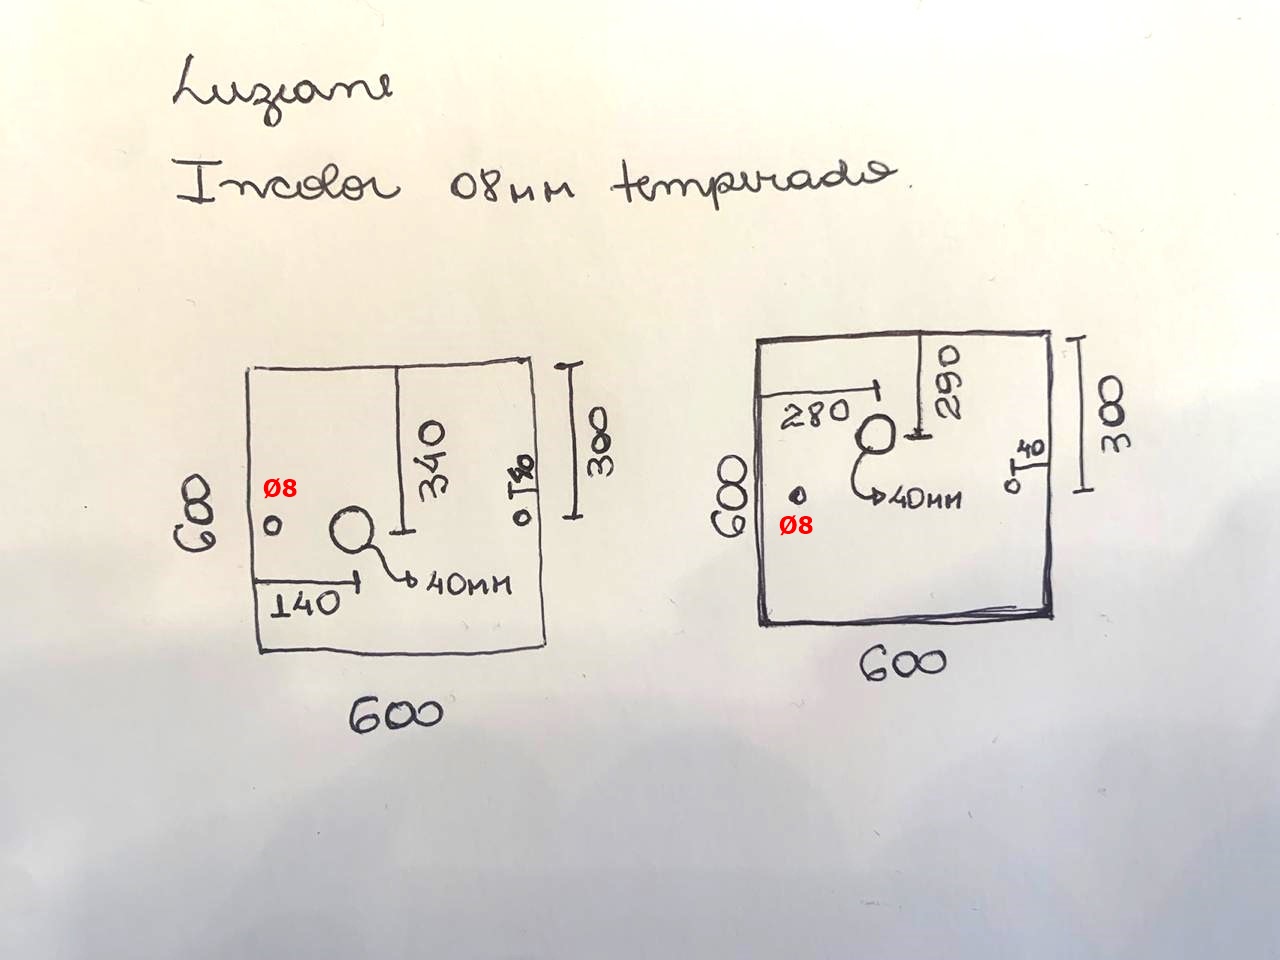 Luziane
Incolor 08mm temperado.
340
300
Ø8
600
40mm
140
600
290
280
40
300
600
40mm
Ø8
600